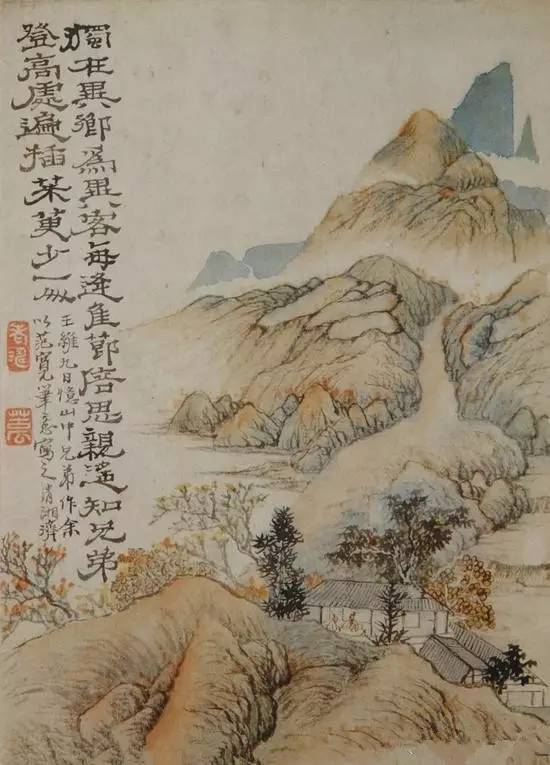 獨在異鄉為異客每逢佳節倍思親遙知兄弟
登高處遍插茱萸少一人
王維九日憶山中兄弟作余
以范寬筆意寫之清湘濟
老濤